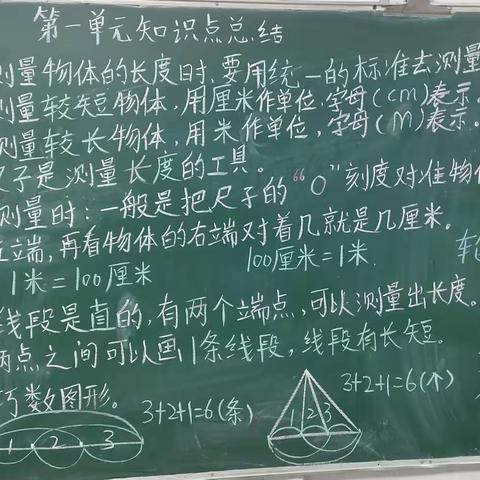 第一单元知识点总结
测量物体的长度时,要用统一的标准去测量
测量较短物体,用厘米作单位,字母(cm)表示。
测量较长物体,用米作单位,字母(m)表示。
尺子是测量长度的工具。
测量时:一般是把尺子的“0”刻度对准物
左端,再看物体的右端对着几就是几厘米。
1米=100厘米 100厘米=1米.
线段是直的,有两个端点,可以测量出长度。
两点之间可以画1条线段,线段有长短.
巧数图形。 3+2+1=6(条) 3+2+1=6(个)
1 2 3
1 2 3